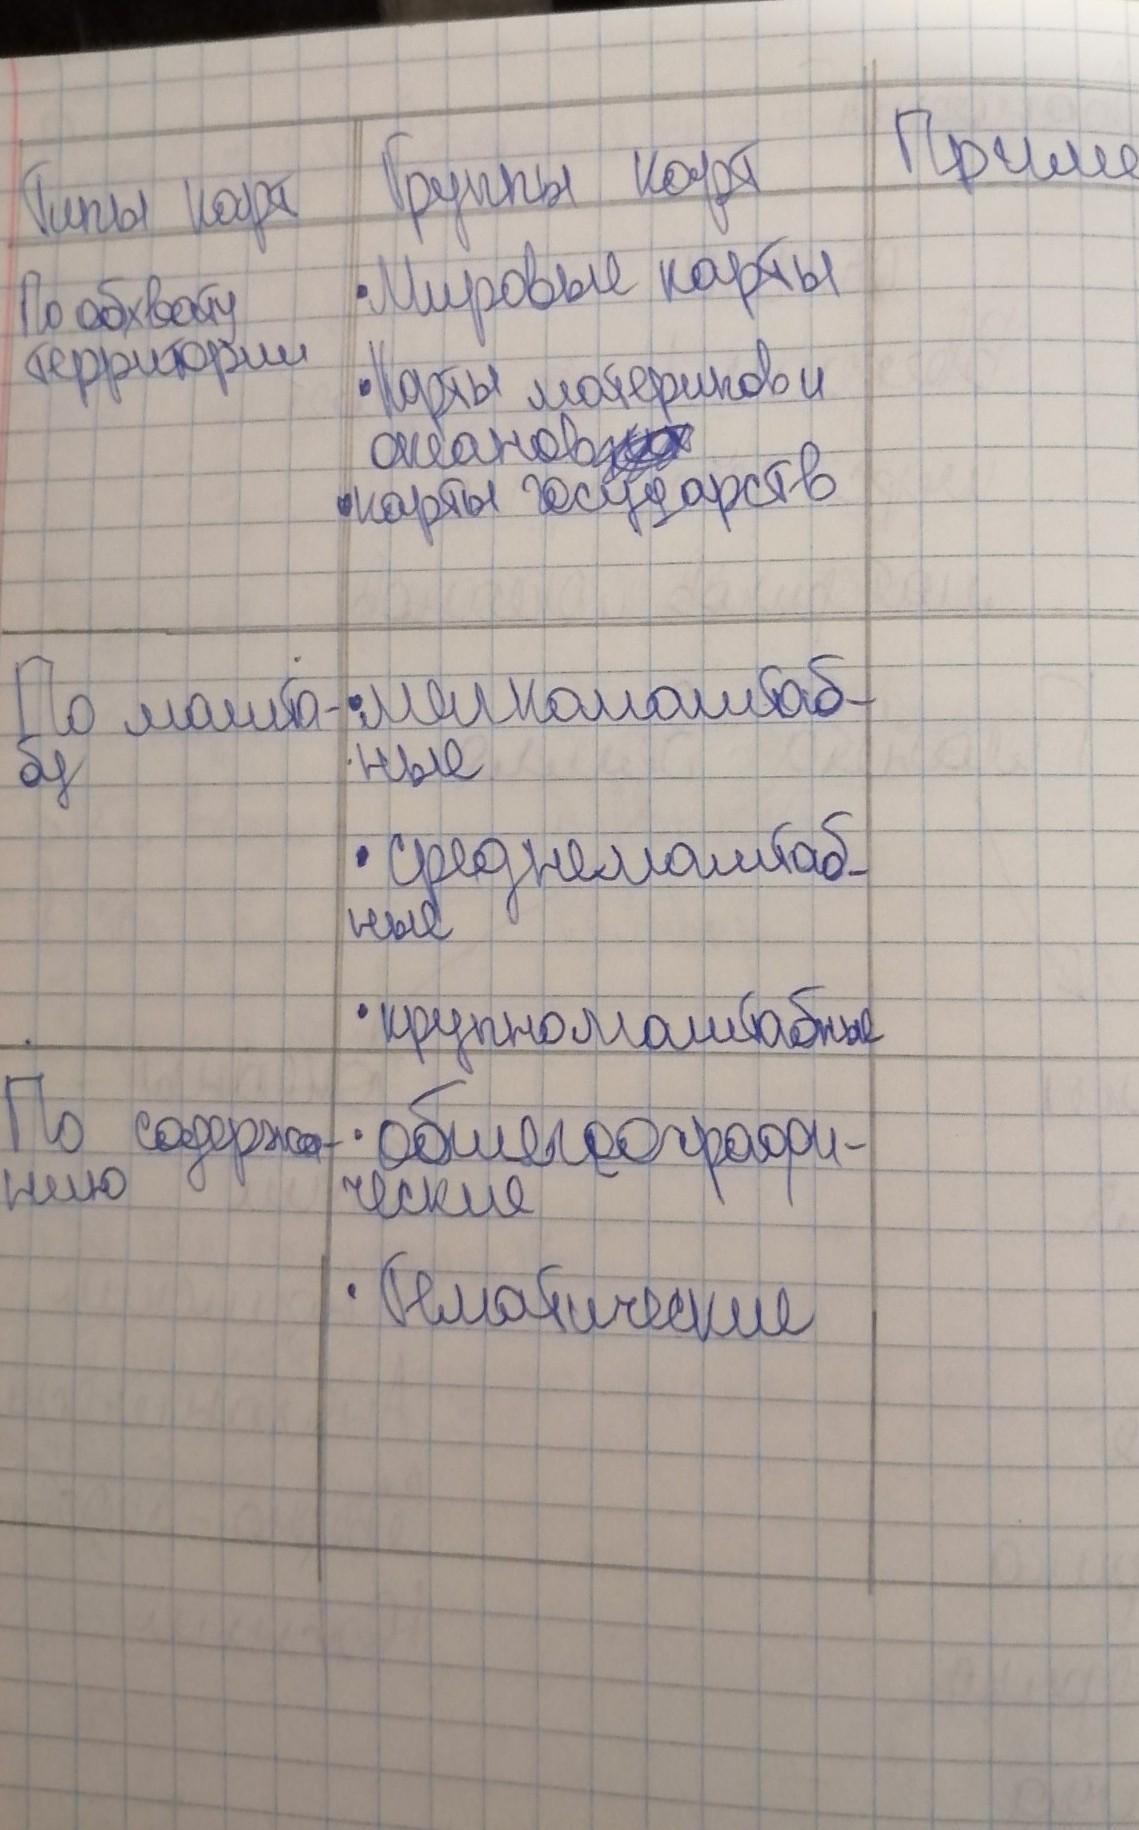 Типы карт
Группы карт
Приме
По обхвату
территории
• Мировые карты
• Карты материков и
океанов
• карты государств
По машта-
бу
• мелкомаштаб-
ные
• среднемаштаб-
ные
• крупномаштабные
По содержа-
нию
• общегеографи-
ческие
• Тематические